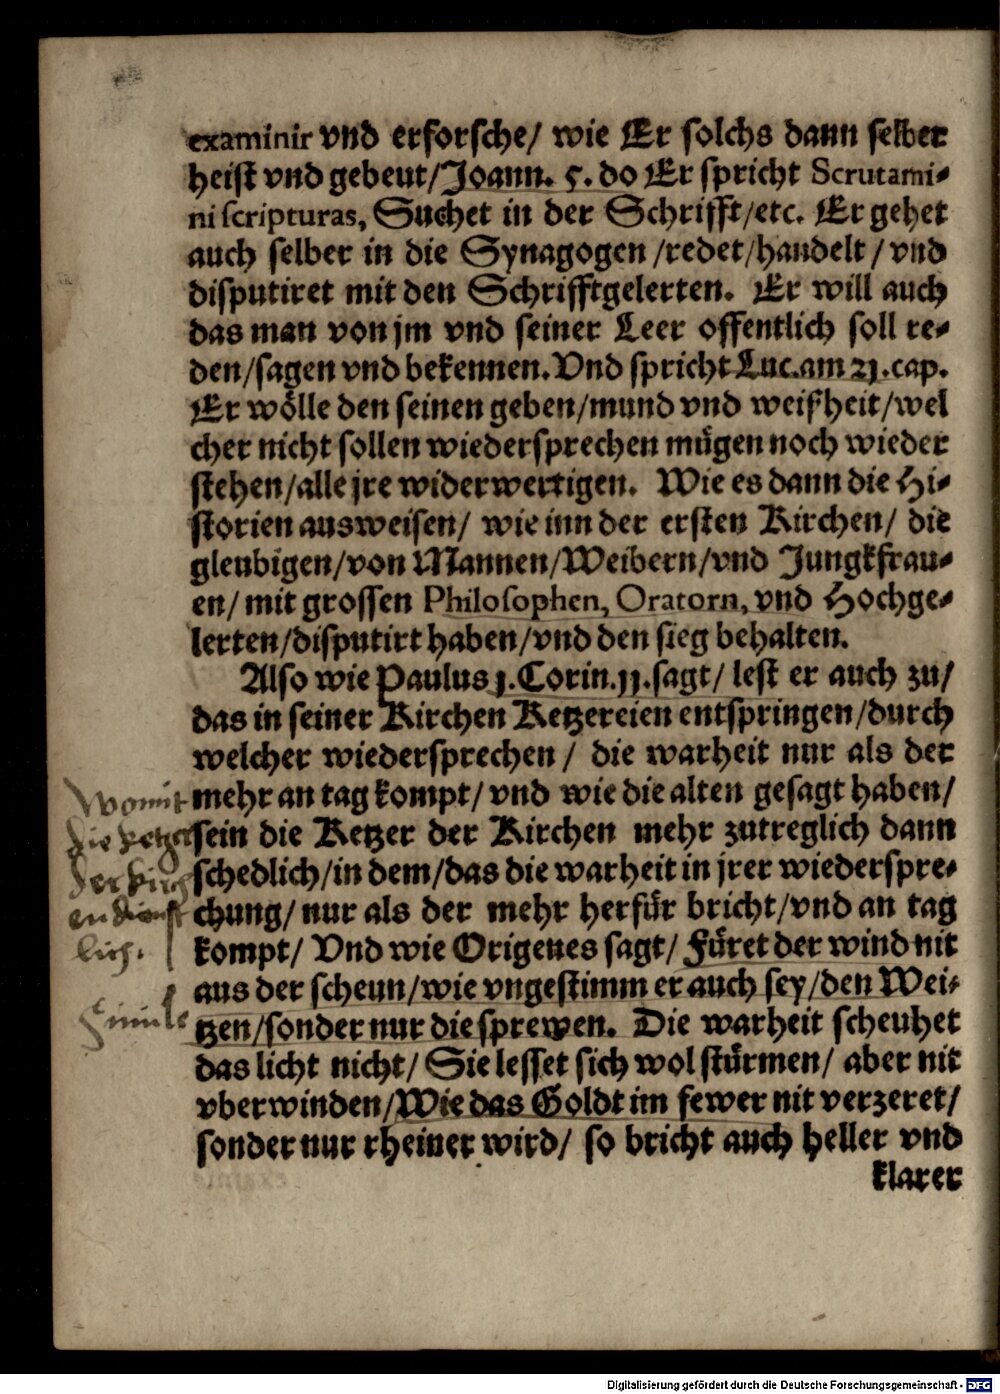 examinir vnd erforsche/ wie Er solchs dann selber
heist vnd gebeut/Joann. 5. do Er spricht Scrutami-
ni scripturas, Suchet in der Schrifft/etc. Er gehet
auch selber in die Synagogen /redet/handelt / vnd
disputiret mit den Schrifftgelerten. Er will auch
das man von jm vnd seiner Leer offentlich soll re-
den/sagen vnd bekennen. Vnd spricht Luc.am 21.cap.
Er wölle den seinen geben/mund vnd weißheit/wel
cher nicht sollen wiedersprechen mügen noch wieder
stehen/alle jre widerwertigen. Wie es dann die Hi-
storien ausweisen/ wie inn der ersten Kirchen/ die
gleubigen/von Mannen/Weibern/vnd Jungkfrau-
en/ mit grossen Philosophen, Oratorn, vnd Hochge-
lerten/disputirt haben/vnd den sieg behalten.
Also wie Paulus 1. Corin. 11. sagt/ lest er auch zu/
das in seiner Kirchen Ketzereien entspringen/durch
welcher wiedersprechen / die warheit nur als der
mehr an tag kompt/ vnd wie die alten gesagt haben/
sein die Ketzer der Kirchen mehr zutreglich dann
schedlich/in dem/das die warheit in jrer wiederspre-
chung/ nur als der mehr herfür bricht/vnd an tag
kompt/ Vnd wie Origenes sagt/ Füret der wind nit
aus der scheun/wie vngestimm er auch sey/den Wei-
tzen/sonder nur die sprewen. Die warheit scheuhet
das licht nicht/ Sie lesset sich wol stürmen/ aber nit
vberwinden/Wie das Goldt im fewer nit verzeret/
sonder nur rheiner wird/ so bricht auch heller vnd
klarer
Womit
die ketzer
der kirch
en dienst
lich.
Simile
Digitalisierung gefördert durch die Deutsche Forschungsgemeinschaft - DFG